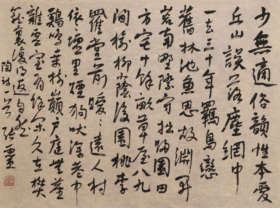 少無適俗韻性本愛
丘山誤落塵網中
一去三十年羈鳥戀
舊林池魚思故淵開
荒南野際守拙歸園田
方宅十餘畝草屋八九
間榆柳蔭後園桃李
羅堂前曖〻遠人村
依〻墟里煙狗吠深巷中
雞鳴桑樹巔戶庭無塵
雜虛室有餘閒久在樊
籠裏復得返自然
陶詩